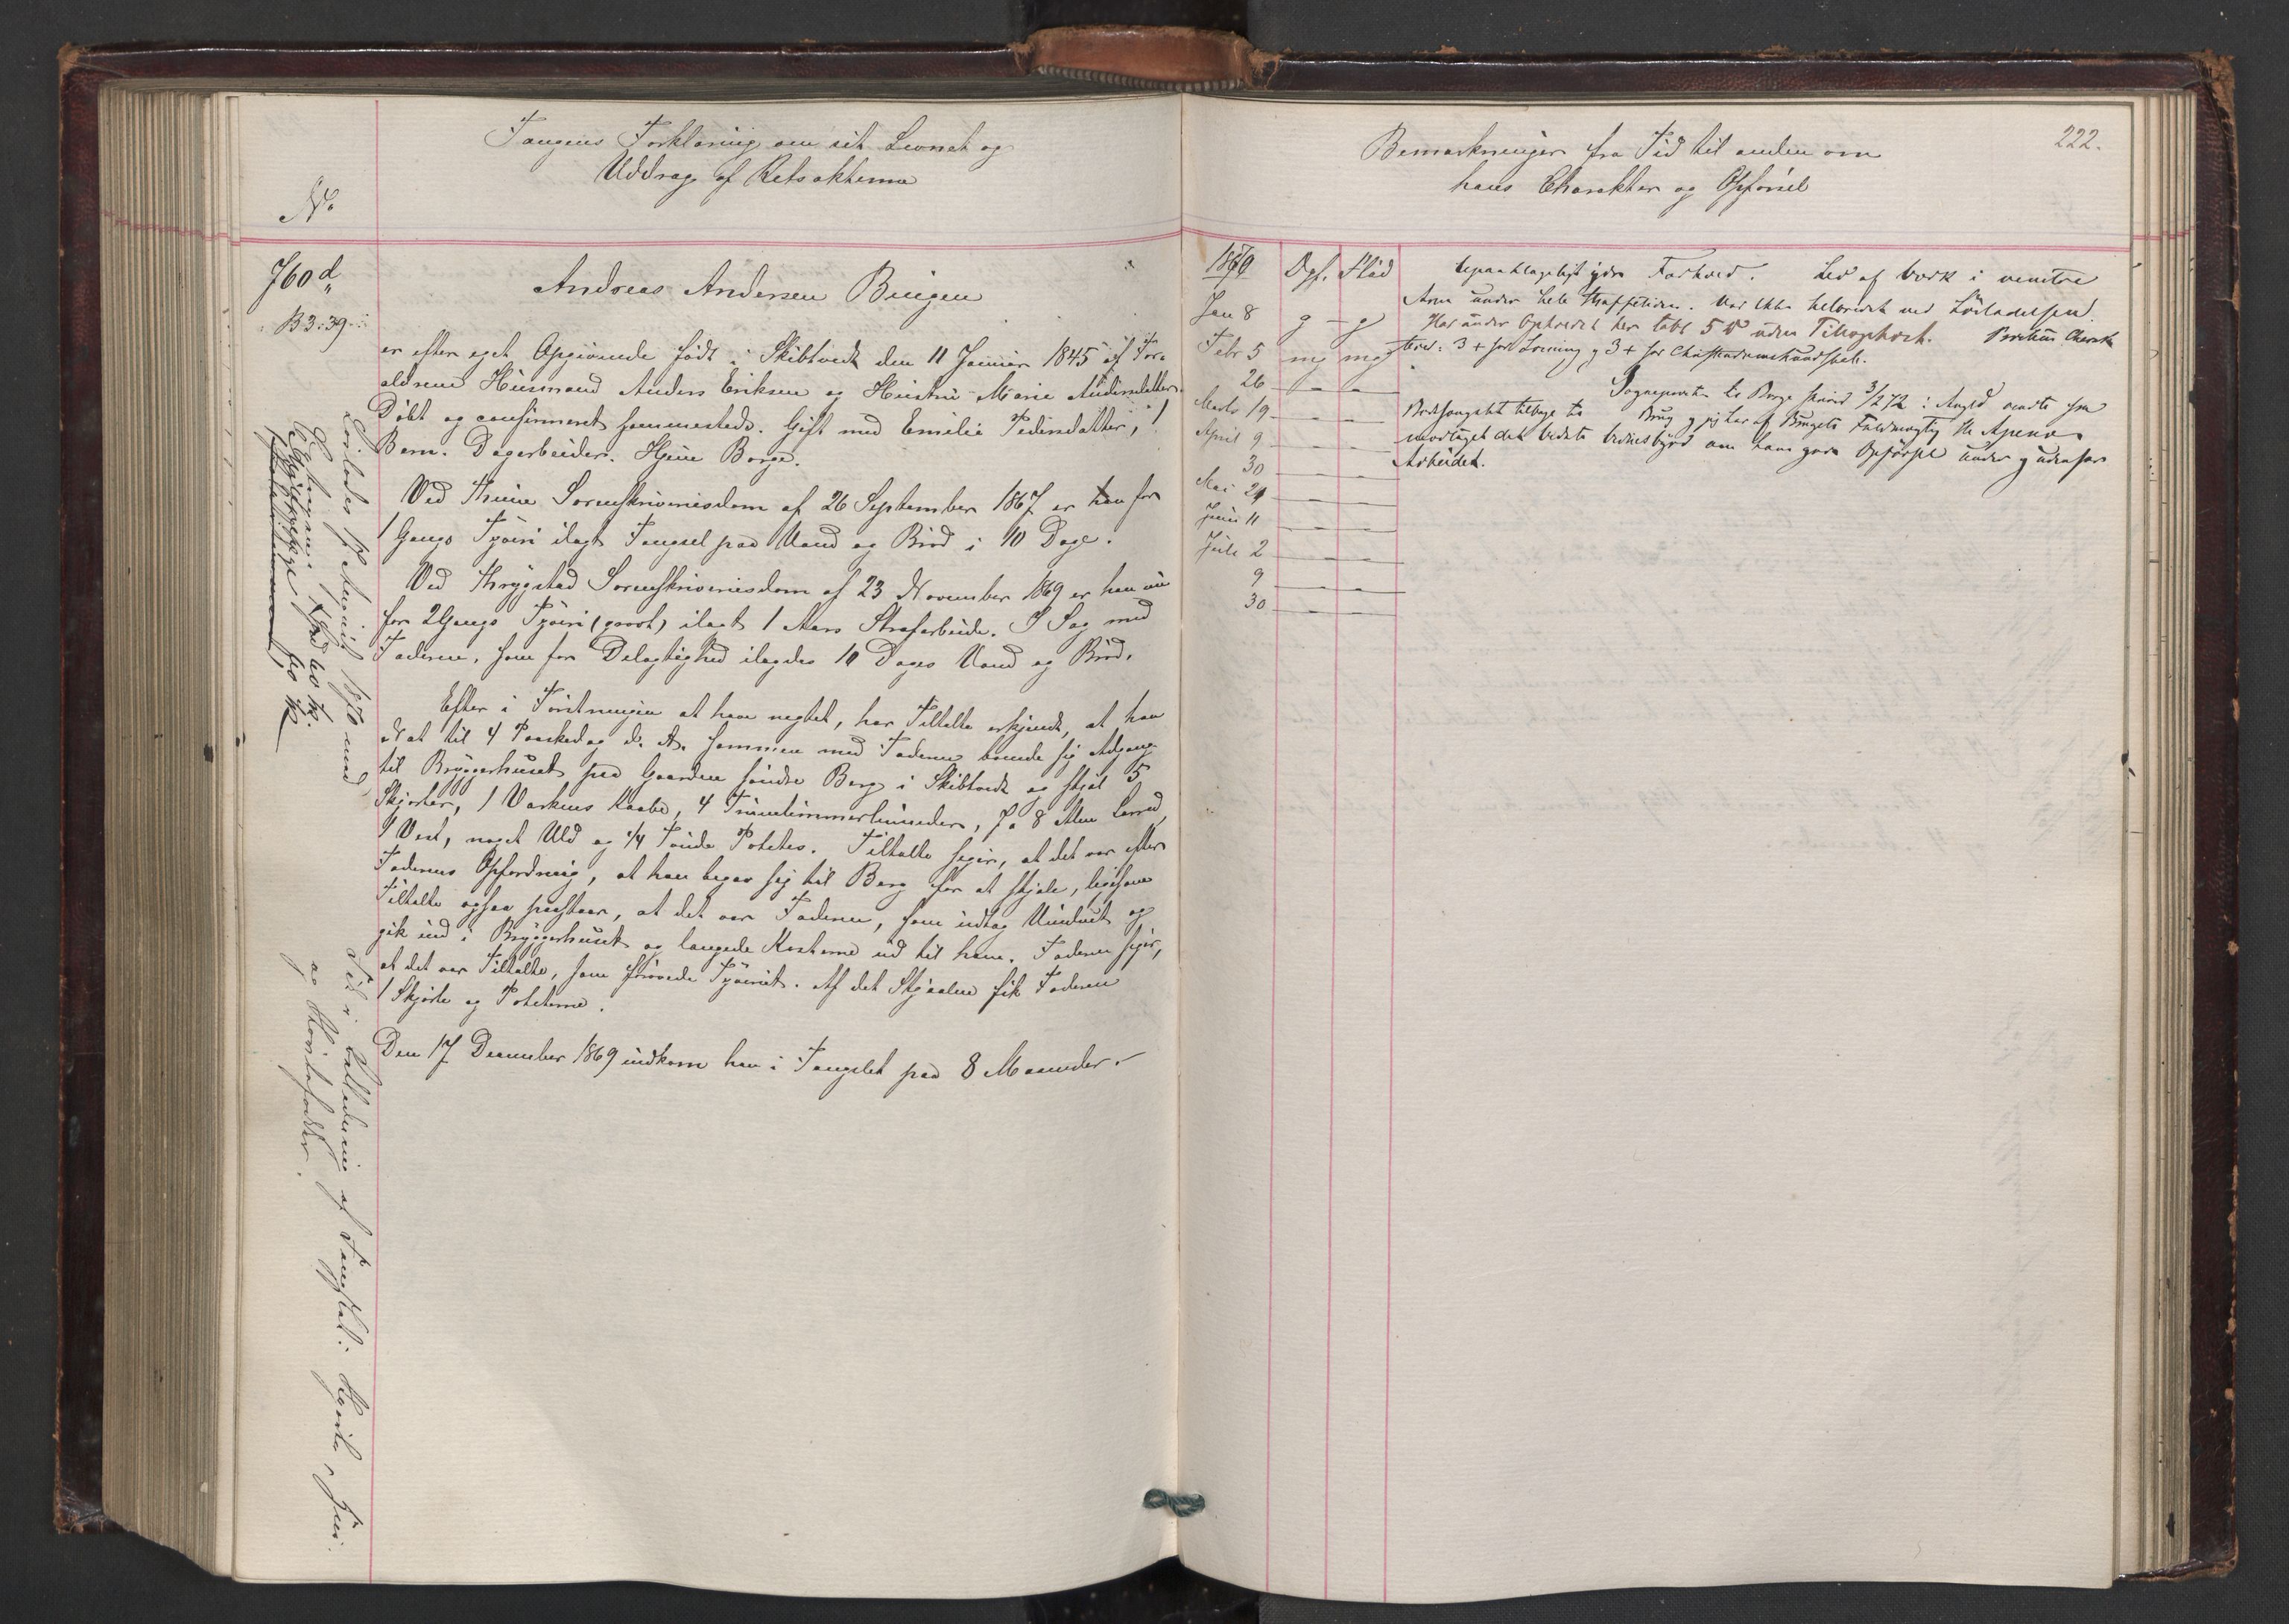 Fangens Forklaring om sit Levnet og
Uddrag af Retsakterne
No
760 d.
B 3:39.
Andreas Andersen Bingen
er efter eget Opgivende født i Skibtvedt den 11 Januar 1845 af For-
ældrene Husmand Anders Eriksen og Hustru Marie Andersdatter.
Døbt og confirmeret sammesteds. Gift med Emilie Pedersdatter, 1
Barn. Dagarbeider. Hjem Borge.
Ved Thune Sorenskriverisdom af 26 September 1867 er han for
1 Gangs Tyveri ilagt Fængsel paa Vand og Brød i 10 Dage.
Ved Thrygstad Sorenskriverisdom af 23 November 1869 er han nu
for 2 Gangs Tyveri (grovt) ilagt 1 Aars Strafarbeide. I Sag med
Faderen, som for Delagtighed ilagdes 10 Dages Vand og Brød.
Efter i Førstningen at have negtet, har Tiltalte erkjendt, at han
Nat til 4 Paaskedag d. A. sammen med Faderen banede sig Adgang
til Bryggerhuset paa Gaarden søndre Berg i Skibtvedt og stjal 5
Skjorter, 1 Verkens Kaabe, 4 Fruentimmerlinneder, 7 a 8 Alen Lerred,
1 Vest, noget Uld og 1/4 Tønde Poteter. Tiltalte siger, at det var efter
Faderens Opfordring, at han begav sig til Berg for at stjæle, ligesom
Tiltalte ogsaa paastaar, at det var Faderen, som udtog Vinduet og
gik ind i Bryggerhuset og langede Kosterne ud til ham. Faderen siger,
at det var Tiltalte, som frøvede Tyveriet. Af det Stjaalne fik Faderen
1 Skjorte og Poteterne.
Den 17 December 1869 indkom han i Fængslet paa 8 Maaneder.
Løslades 17 August 1870 med
Fik i Beklædning af Fængslet: Skjorte,
og Skoieforklæder.
222.
Bemærkninger fra Tid til anden om
hans Charakter og Opførsel
1870 Opf. Flid
Jan 8 g - g
Febr 5 mg mg
26 - -
Marts 19 - -
April 9 - -
30 - -
Mai 21 - -
Juni 11 - -
Juli 2 - -
9 - -
30 - -
Upaaklageligt ydre Forhold. Led af Værk i venstre
Arm under hele Straffetiden. Var ikke helbredet ved Løsladelsen.
Har under Opholdet her tabt 5 ℔ uden Tillægskost.
terer: 3 + for Læsning og 3 + for Christendomskundskab.
Sognepresten til Borge skriver 3/2 72: Angjd vendte fra
Bodsfængslet tilbage til Brug og jeg har af Brugets Fuldmægtig Hr
modtaget det bedste Vidnesbyrd om hans gode Opførsel under og udenfor
Arbeidet.